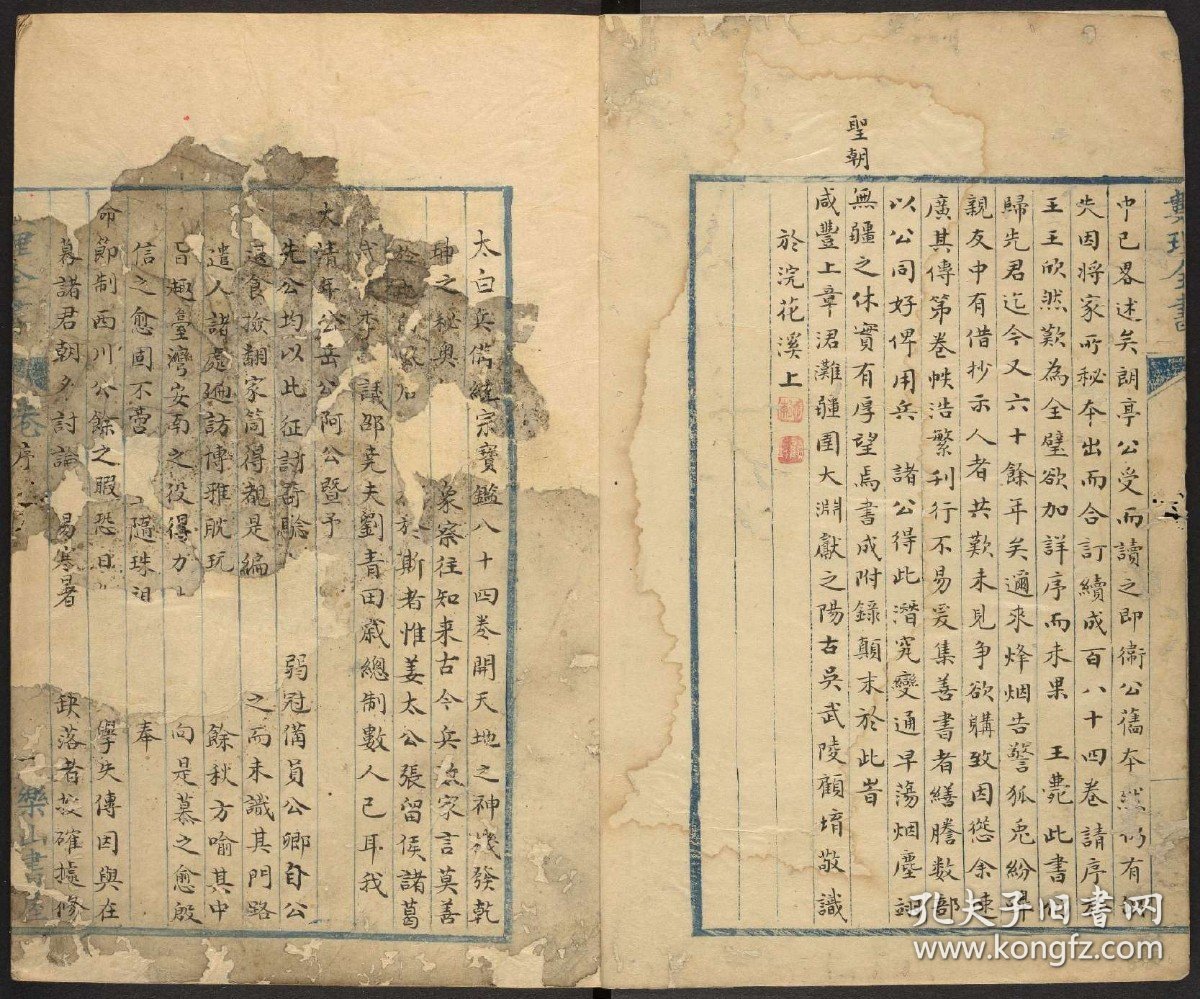 中已畧述矣朗亭公受而讀之即衞公舊本然仍有
失因將家所秘本出而合訂續成百八十四卷請序
王王欣然歎為全璧欲加詳序而未果 王薨此書
歸先君迄今又六十餘年矣邇來烽烟告警狐兎紛
親友中有借抄示人者共歎未見爭欲購致因慫余速
廣其傳第卷帙浩繁刊行不易爰集善書者繕謄數部
以公同好俾用兵 諸公得此潛究變通早蕩烟塵
聖朝
無疆之休實有厚望焉書成附錄顛末於此旹
咸豐上章涒灘疆圉大淵獻之陽古吳武陵顧堉敬識
於浣花溪上
太白兵備統宗寶鑑八十四卷開天地之神幾發乾
坤之秘奧 象察往知来古今兵家言莫善
於 於斯者惟姜太公張留侯諸葛
武 李 邵堯夫劉青田戚總制數人已耳我
大清年公岳公阿公暨予
先公均以此征討奇驗 弱冠備員公卿自公
退食撿翻家笥得覩是編 之而未識其門路
遣人諸處遍訪博雅耽玩 餘秋方喻其中
旨趣臺灣安南之役得力 向是慕之愈殷
信之愈固不啻 隨珠 奉
命節制西川公餘之暇恐日 學失傳因與在
幕諸君朝夕討論 易寒暑 缺落者 確據修
卷 序
樂山書屋
孔夫子旧书网
www.kongfz.com